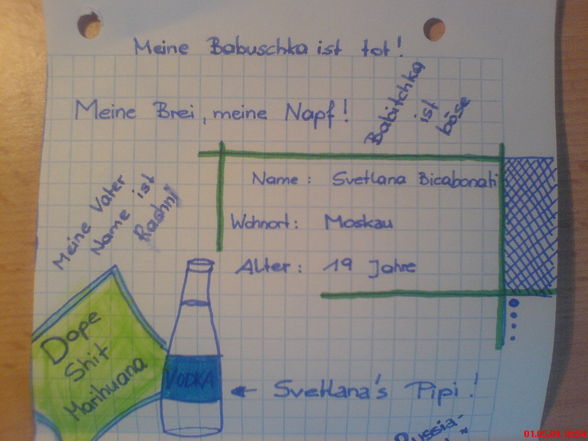 Meine Babuschka ist tot!
Meine Brei, meine Napf!
Babitchka
ist
böse
Meine Vater
Name ist
Rashnj
Name: Svetlana Bicabonati
Wohnort: Moskau
Alter: 19 Jahre
Dope
Shit
Marihuana
VODKA
← Svetlana's Pipi!
Russia-